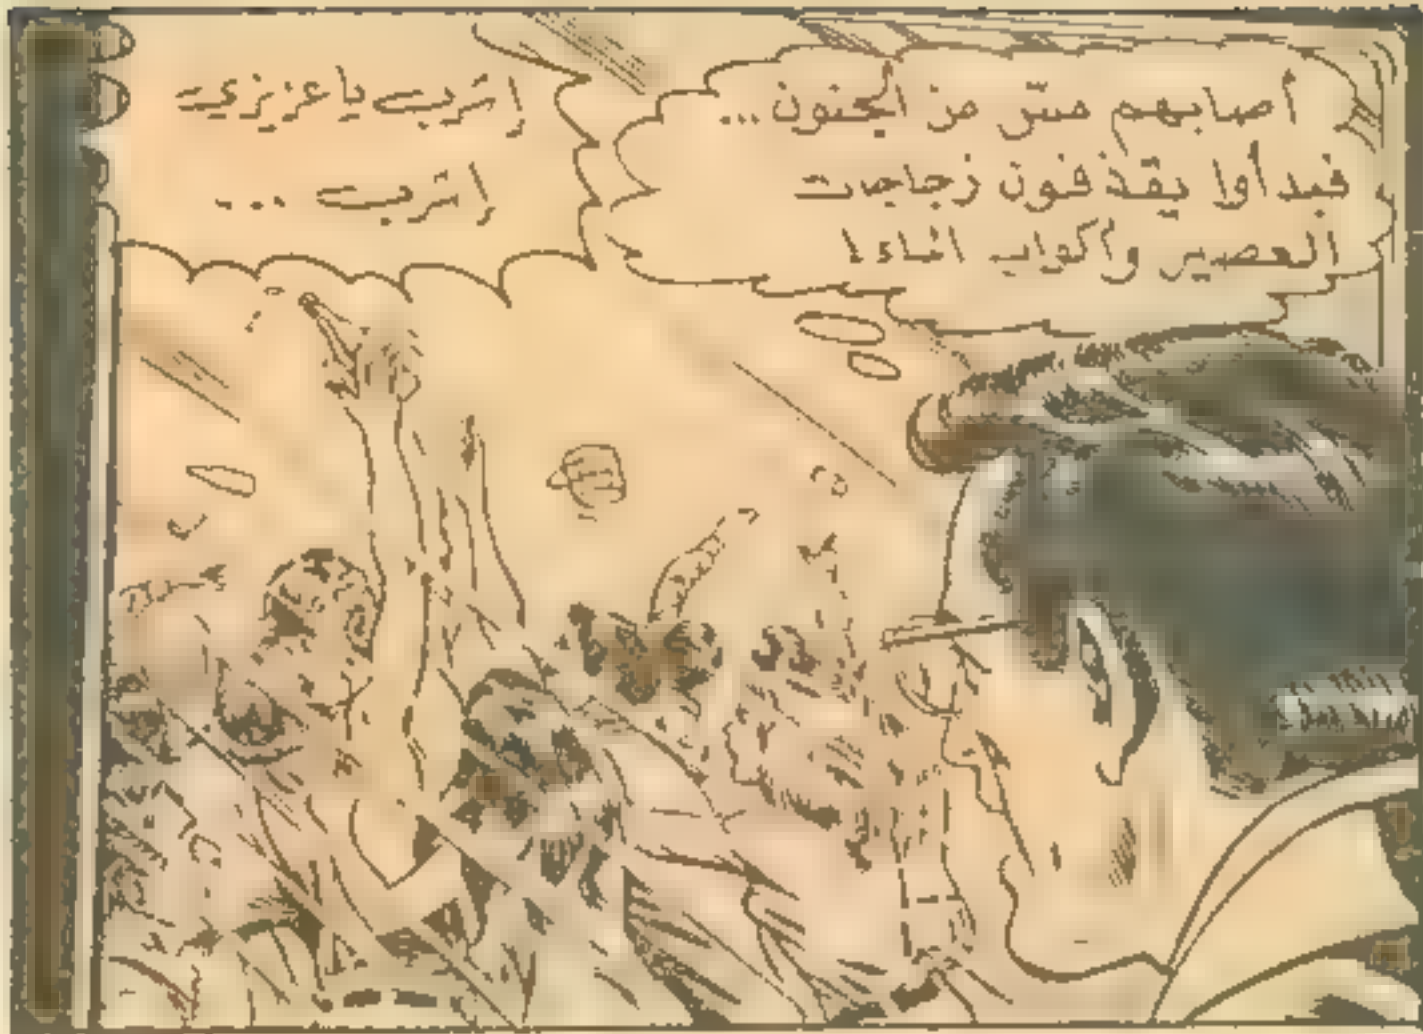 أصابهم مسّ من الجنون...
فبدأوا يقذفون زجاجات
العصير وأكواب الماء!
إشرب يا عزيزي
إشرب ...